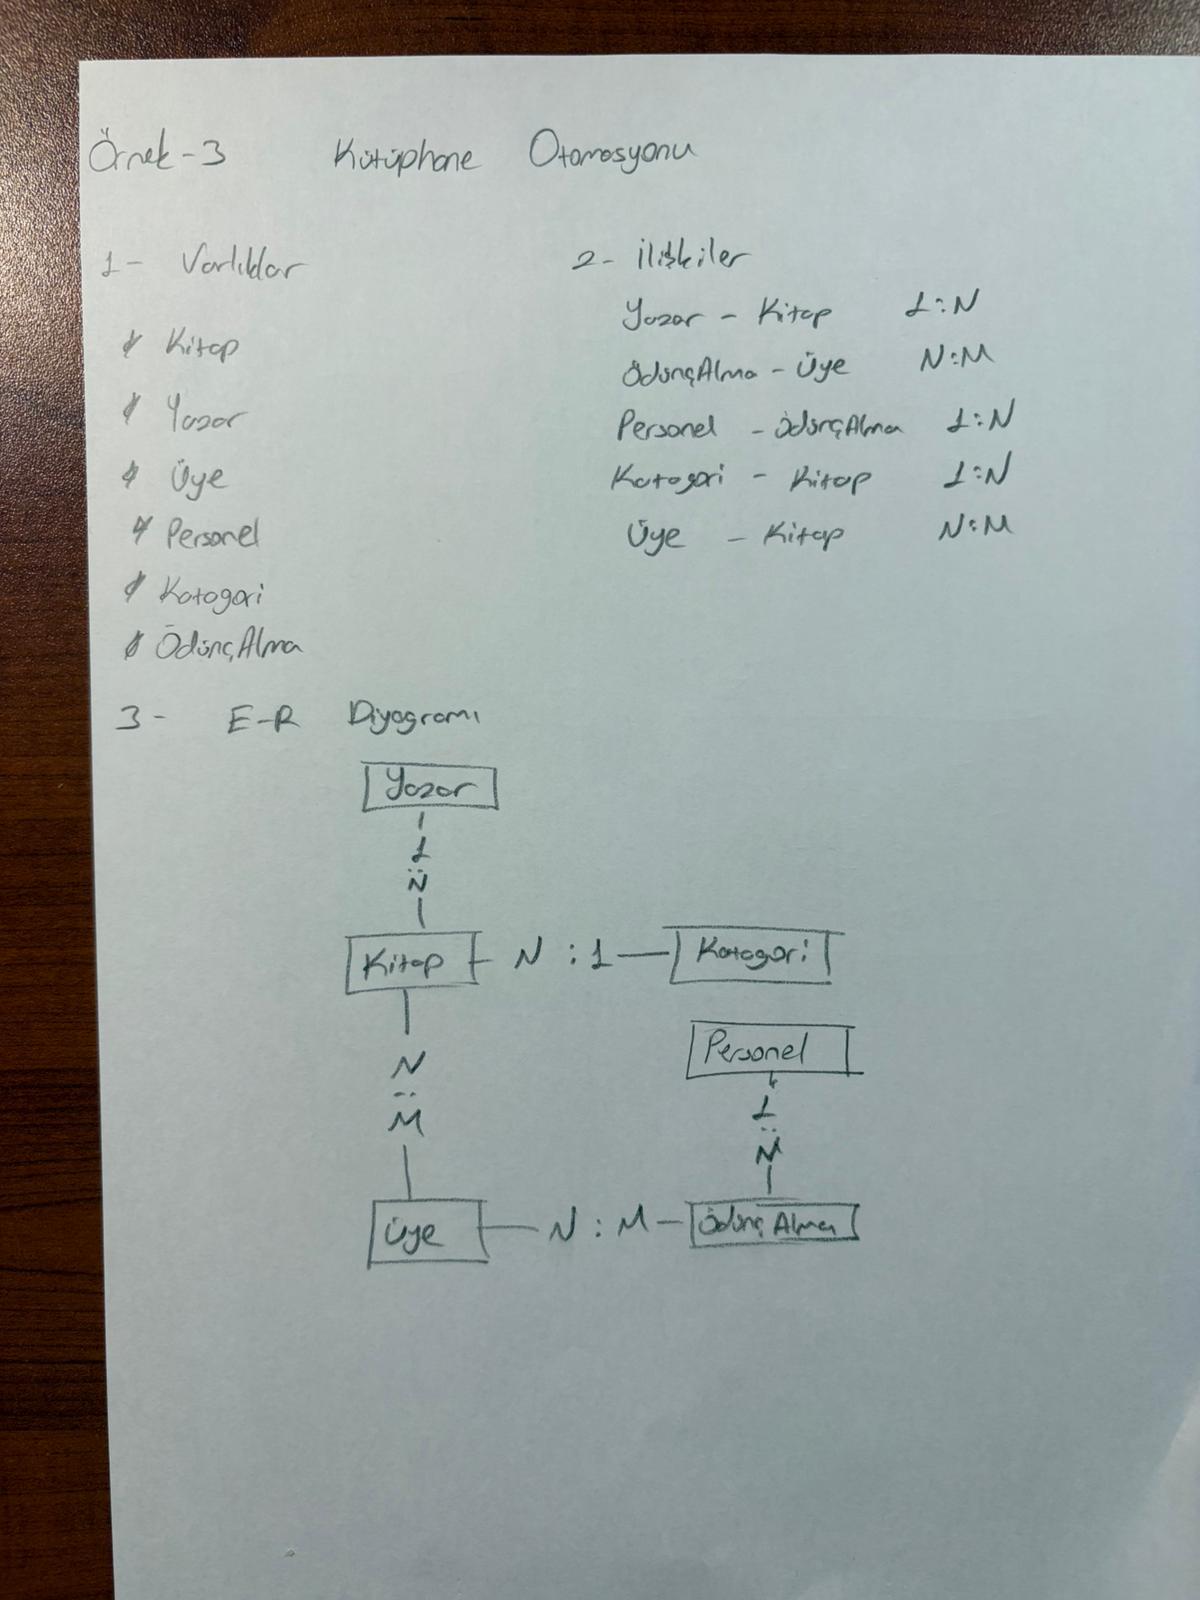 Örnek-3 Kütüphane Otomasyonu
1- Varlıklar
* Kitap
* Yazar
* Üye
* Personel
* Katogori
* ÖdünçAlma
2- İlişkiler
Yazar - Kitap 1:N
ÖdünçAlma - Üye N:M
Personel - ÖdünçAlma 1:N
Katogori - Kitap 1:N
Üye - Kitap N:M
3- E-R Diyagramı
Yazar
1
:
N
Kitap N : 1 Katogori
N
:
M
Personel
1
:
N
Üye N : M ÖdünçAlma